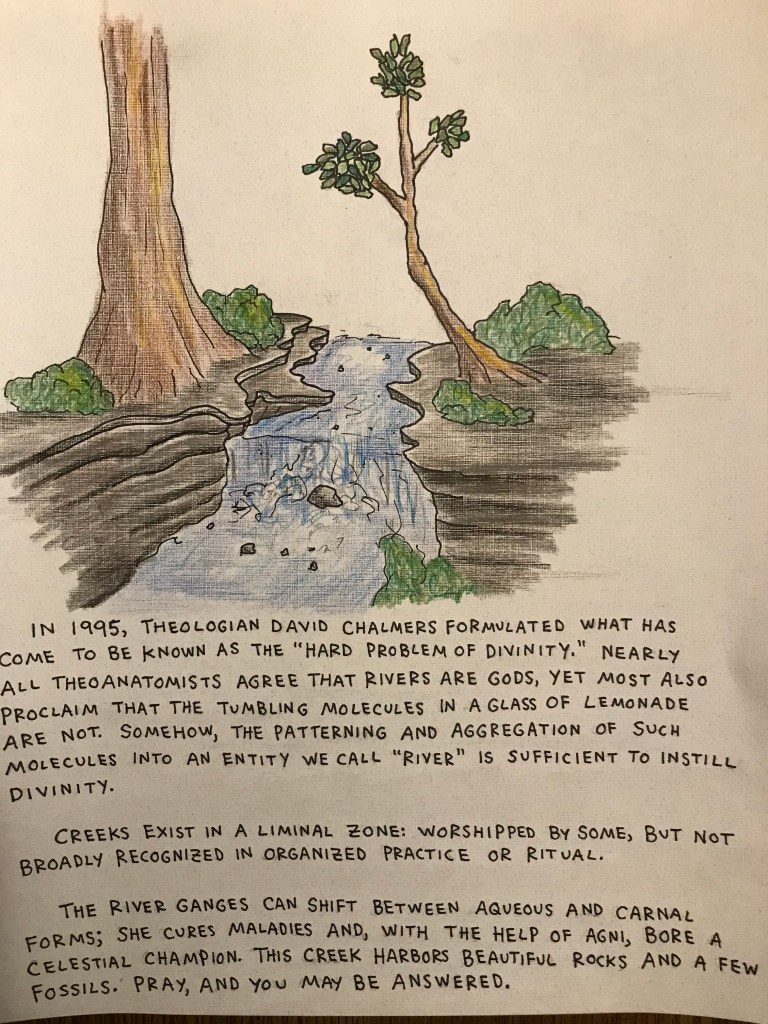 IN 1995, THEOLOGIAN DAVID CHALMERS FORMULATED WHAT HAS
COME TO BE KNOWN AS THE "HARD PROBLEM OF DIVINITY." NEARLY
ALL THEOANATOMISTS AGREE THAT RIVERS ARE GODS, YET MOST ALSO
PROCLAIM THAT THE TUMBLING MOLECULES IN A GLASS OF LEMONADE
ARE NOT. SOMEHOW, THE PATTERNING AND AGGREGATION OF SUCH
MOLECULES INTO AN ENTITY WE CALL "RIVER" IS SUFFICIENT TO INSTILL
DIVINITY.
CREEKS EXIST IN A LIMINAL ZONE: WORSHIPPED BY SOME, BUT NOT
BROADLY RECOGNIZED IN ORGANIZED PRACTICE OR RITUAL.
THE RIVER GANGES CAN SHIFT BETWEEN AQUEOUS AND CARNAL
FORMS; SHE CURES MALADIES AND, WITH THE HELP OF AGNI, BORE A
CELESTIAL CHAMPION. THIS CREEK HARBORS BEAUTIFUL ROCKS AND A FEW
FOSSILS. PRAY, AND YOU MAY BE ANSWERED.